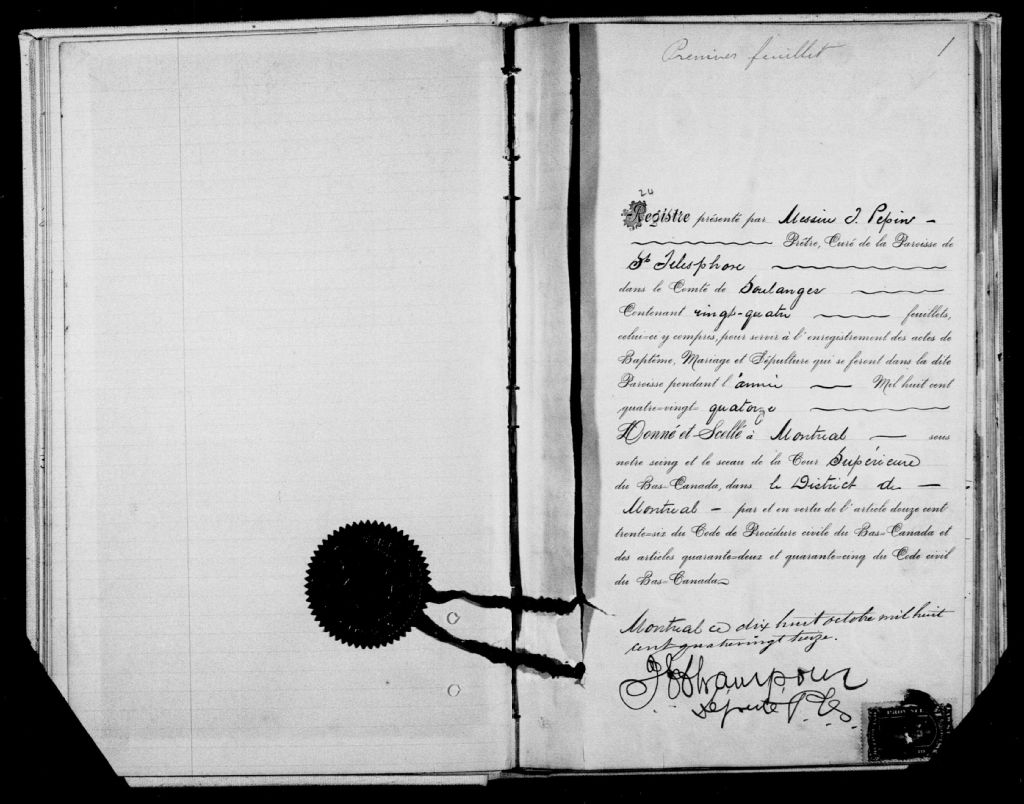 Premier feuillet
1
24
Registre présenté par Messire J. Pepin
Prêtre, Curé de la Paroisse de
St Télesphore
dans le Comté de Soulanges
Contenant vingt-quatre feuillets,
celui-ci y compris, pour servir à l'enregistrement des actes de
Baptême, Mariage et Sépulture qui se feront dans la dite
Paroisse pendant l'année Mil huit cent
quatre-vingt-quatorze
Donné et Scellé à Montreal sous
notre seing et le sceau de la Cour Supérieure
du Bas-Canada, dans le District de
Montreal par et en vertu de l'article douze cent
trente-six du Code de Procédure civile du Bas-Canada et
des articles quarante-deux et quarante-cinq du Code civil
du Bas-Canada
Montreal ce dix huit octobre mil huit
cent quatrevingt treize.
Député P. C. S.
PROVINCE